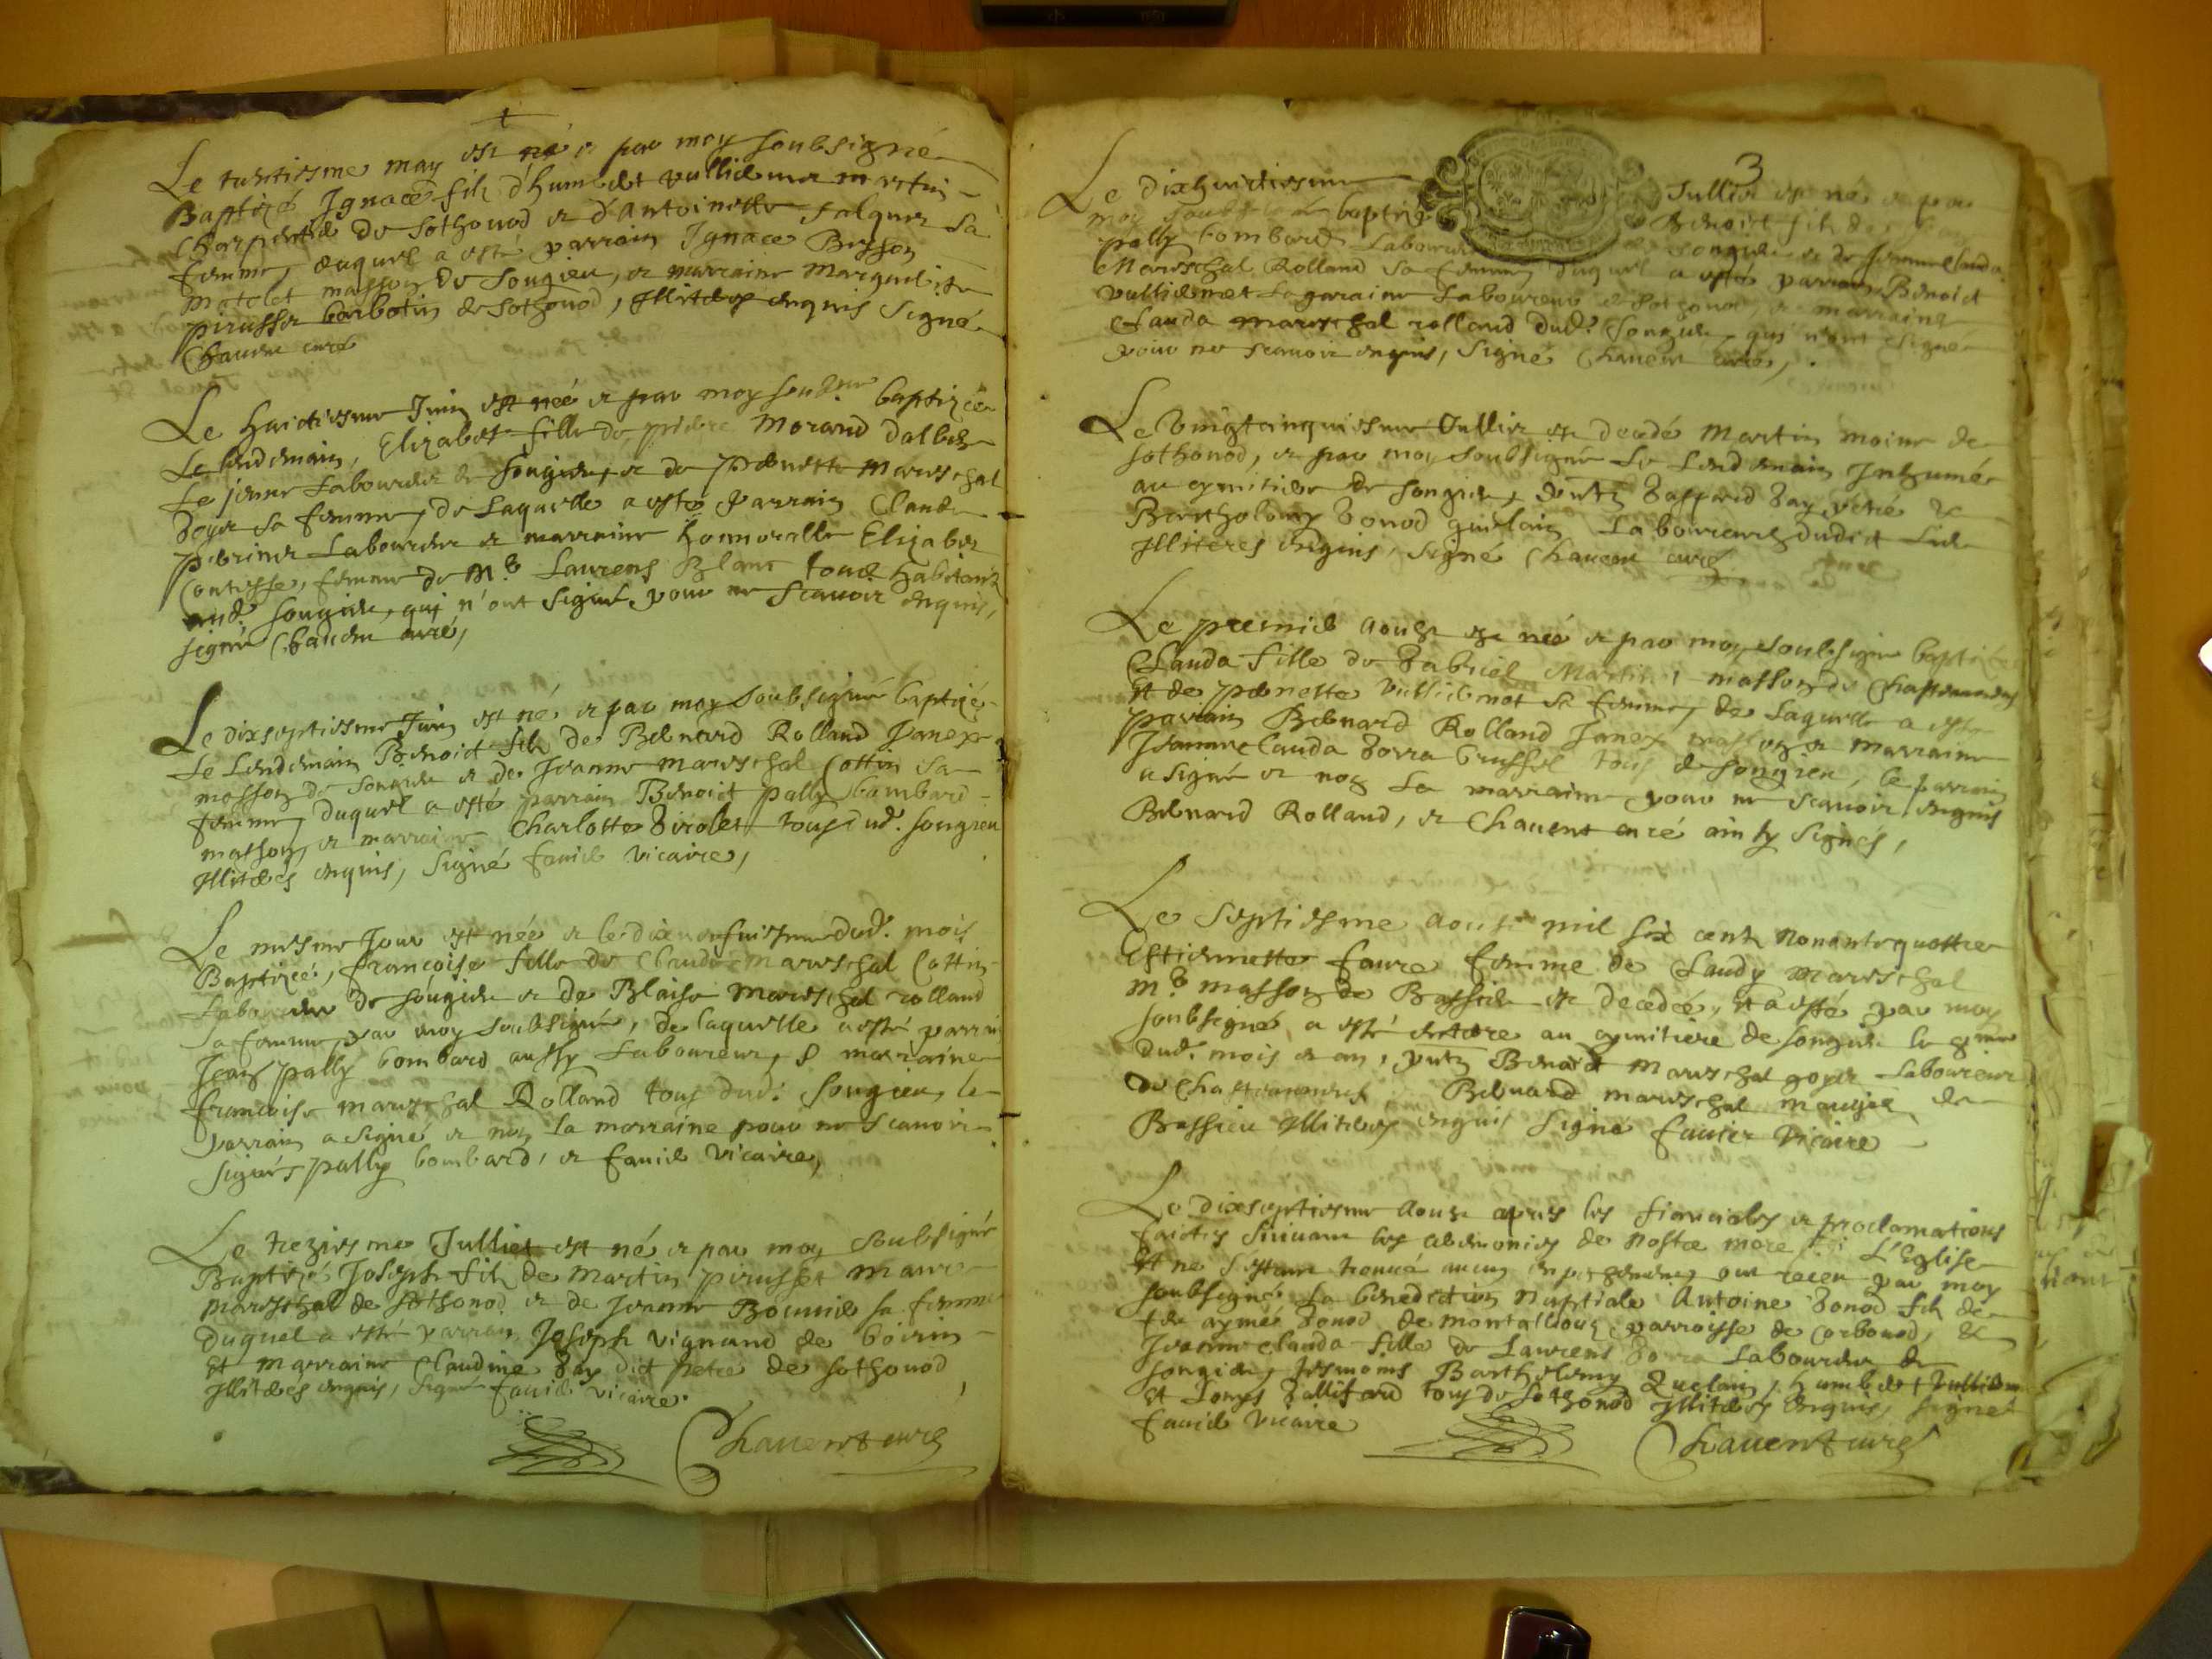 Le trentiesme may est né et par moy soubsigné
Baptizé Ignace fils d'humbert vulliemet martin
Charpentier de Sothonod et d'Antoinette falquet sa
femme, duquel a esté parrain Ignace Besson
matelet masson de Songieu, et marraine Marguerite
pirusset barbotin de Sothonod, Illiteres enquis Signé
Chavent curé
Le huictiesme Juin est née et par moy soubné baptizée
Le lendemain, Elizabet fille de pierre Morand Dalbe
Le jeune Laboureur de Songieu, et de pernette mareschal
goyet sa femme, de Laquelle a esté parrain Claude
perrinet Laboureur et marraine honnorable Elizabet
Contesse, femme de Me Laurens Blanc tous habitants
aud. Songieu, qui n'ont signé pour ne Scavoir enquis,
signé Chavent curé,
Le dixseptiesme Juin est né et par moy soubsigné baptizé
Le Lendemain Benoict fils de Bernard Rolland Janex
masson de Songieu et de Jeanne mareschal Cottin sa
femme, duquel a esté parrain Benoict pally bombard
masson, et marraine Charlotte Girolet tous dud. Songieu
Illiteres enquis, Signé favier vicaire,
Le mesme Jour est née et le dixneufuiesme dud. mois
Baptizée, francoise fille de Claude mareschal Cottin
Laboureur de Songieu et de Blaise mareschal rolland
sa femme, par moy soubsigné, de laquelle a esté parrain
Jean pally bombard aussy Laboureur, & marraine
francoise mareschal Rolland tous dud. Songieu, le
parrain a signé et non la marraine pour ne Scavoir
signés pally bombard, et favier vicaire,
Le treziesme Julliet est né et par moy soubsigné
Baptizé Joseph fils de Martin pirusset maure
mareschal de Sothonod et de Jeanne Bounie sa femme
Duquel a esté parrain Joseph vignand de boirin
Et marraine Claudine Gay dict petre de Sothonod
Illiteres enquis, signé favier vicaire.
Chavent curé
3
Le dixhuictiesme Julliet est né et par
moy baptizé Benoict fils de
pally bombard Laboureur de Songieu et de Jeanne Clauda
Mareschal Rolland sa femme, duquel a esté parrain Benoict
vulliemet Lagaraine Laboureur de Sothonod, et marraine
Clauda mareschal rolland dud. Songieu, qui n'ont signé
pour ne scavoir enquis, signé Chavent curé,
Le vingtcinquiesme Jullier est decedé Martin moine de
Sothonod, et par moy soubsigné Le Lendemain Inhumé
au cymitiere de Songieu, pntz Gaspard Gay petré &
Bartholomy Gonod guelain Laboureurs dudict Lieu
Illiteres enquis, Signé Chavent curé
Le premier Aoust est née et par moy soubsigné baptizée
Clauda fille de Gabriel Martinet masson de
Et de pernette Vulliemot sa femme, de Laquelle a esté
parrain Bernard Rolland Janex masson et marraine
Jeanne Clauda Gorra brussel tous de Songieu, le parrain
a signé et non la marraine pour ne scavoir enquis
Bernard Rolland, et Chavent curé ainsy signés,
Le Septiesme Aoust mil six cents nonantequattre
Estiennette faure femme de Claudy mareschal
Me masson de Bassieu est decedée, et a esté par moy
soubsigné a esté enterre au cymitiere de Songieu le
dud. mois et an, pntz Benoict mareschal goyet Laboureur
de Bernard mareschal maugier de
Bassieu Illiteres enquis signé favier vicaire
Le dixseptiesme Aoust apres les fiancialles et proclamations
faictes Suivant les ceremonies de nostre mere L'Eglise
Et ne s'estant trouvé aucun empechement, ont receu par moy
soubsigné La benediction nuptiale Antoine Gonod fils de
feu aymé Gonod de montalbouz parroisse de Corbonod, &
Jeanne Clauda fille de Laurens Gorra Laboureur de
Songieu, Tesmoins Barthelemy Quelain, humbert Vulliem
Et tous de Sothonod Illiteres enquis, signé
favier vicaire
Chavent curé